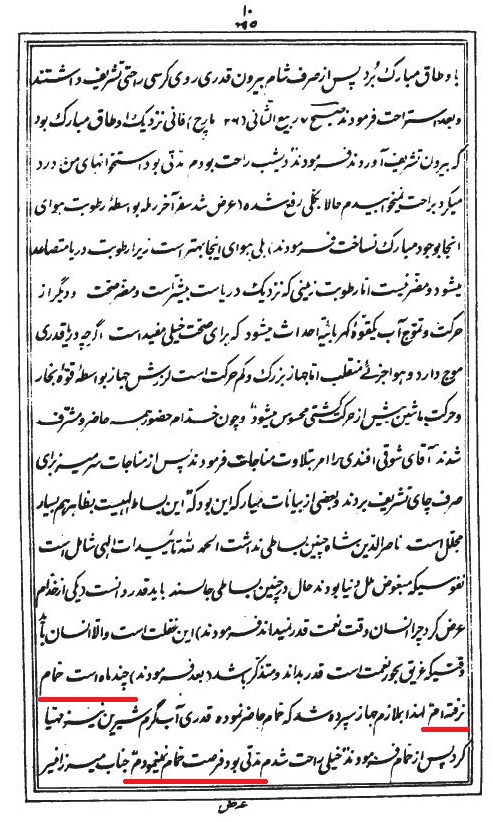 ١٠
٢٩٥
باوطاق مبارک بُرد پس از صرف شام بیرون قدری روی کرسی راحتی تشریف داشتند
و بعد استراحت فرمودند صبح ٧ ربیع الثانی (٢٦ مارچ) فانی نزدیک اوطاق مبارک بود
که بیرون تشریف آوردند فرمودند دیشب راحت بودم مدتی بود استخوانهای من درد
میکرد براحت نمیخوابیدم حالا بکلی رفع شده (عرض شد سفر آخر رمله بواسطهٔ رطوبت هوای
آنجا بوجود مبارک نساخت فرمودند) بلی هوای اینجا بهتر است زیرا رطوبت دریا متصاعد
میشود و مضر نیست اما رطوبت زمینی که نزدیک دریاست بیشتر است و مضر صحت و دیگر از
حرکت و تموج آب یکقوهٔ کهربائیه احداث میشود که برای صحت خیلی مفید است اگرچه دریا قدری
موج دارد و هوا جزئی منقلب اما جهاز بزرگ و کم حرکت است لرزش جهاز بواسطه قوهٔ بخار
و حرکت ماشین بیش از حرکت کشتی محسوس میشود و چون خدام حضور همه حاضر و مشرف
شدند آقای شوقی افندی را امر بتلاوت مناجات فرمودند پس از مناجات سر میز برای
صرف چای تشریف بردند و بعضی از بیانات مبارکه این بود که این بساط الهیست بظاهر هم بسیار
مجلل است ناصرالدین شاه چنین بساطی نداشت الحمد لله تأئیدات الهی شامل است
نفوسیکه مبغوض ملل دنیا بودند حال در چنین بساطی جالسند باید قدر دانست (یکی از خدام
عرض کرد چرا انسان وقت نعمت قدر نمیداند فرمودند) این غفلت است والا انسان باید
وقتیکه غریق بحور نعمت است قدر بداند و متذکر باشد (بعد فرمودند) چند ماه است حمام
نرفته‌ام لهذا بملازم جهاز سپرده شد که حمام حاضر نموده قدری آب گرم شیرین نیز مهیا
کرد پس از حمام فرمودند خیلی راحت شدم مدتی بود فرصت حمام نمینمودم جناب میرزا منیر
عرض